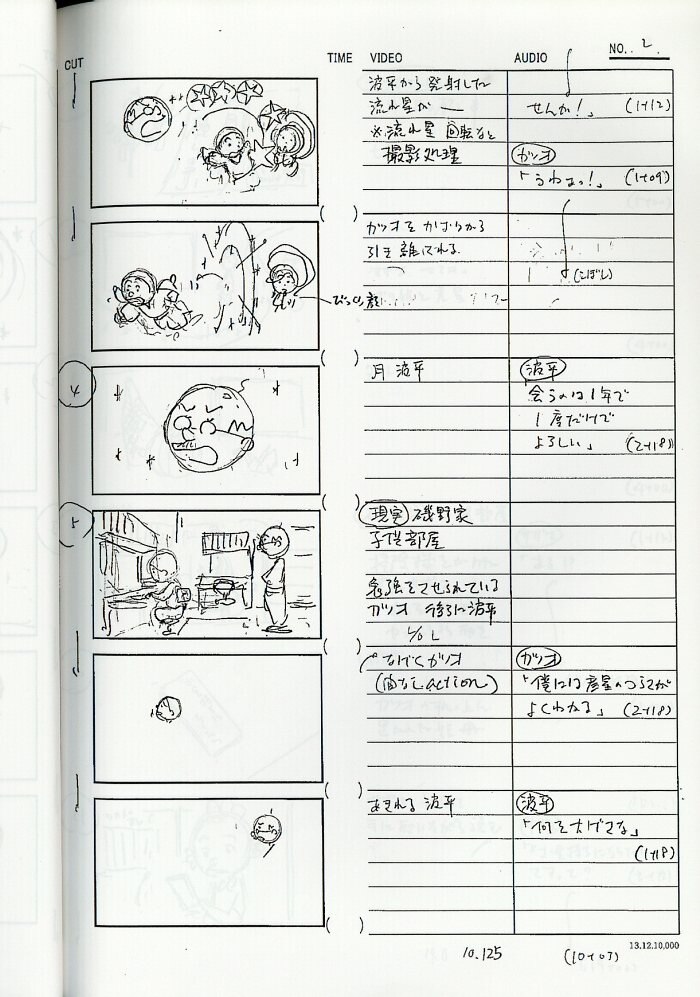 CUT
TIME VIDEO
AUDIO
NO. 2
波平から発射した
流れ星が ー
※流れ星 回転など
撮影処理
せんか!」 (1+12)
カツオ
「うわぁっ!」 (1+09)
カツオをかおりから
引き離される
(こぼし)
びっくり顔
4
月 波平
波平
会うのは1年で
1度だけで
よろしい」 (2+18)
5
現実 磯野家
子供部屋
勉強をさせられている
カツオ 後ろに波平
なげくカツオ
カツオ
「僕には彦星のつらさが
よくわかる」 (2+18)
あきれる 波平
波平
「何を大げさな」
(1+18)
10.125
(10+03)
13.12.10,000